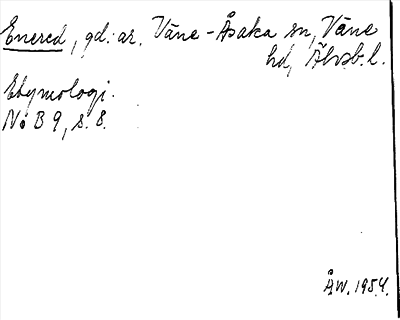 Enered, gd. ar. Väne-Åsaka sn, Väne
hd, Älvsb. l.
Etymologi.
NoB 9, s. 8.
ÅW. 1954.